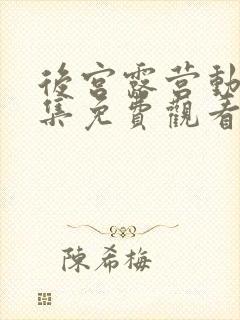 後宮露営動
集免費觀看
陳希梅